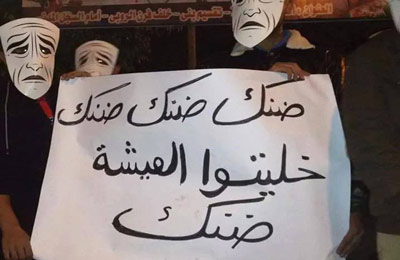 ضنك ضنك ضنك
خليتوا العيشة
ضنك